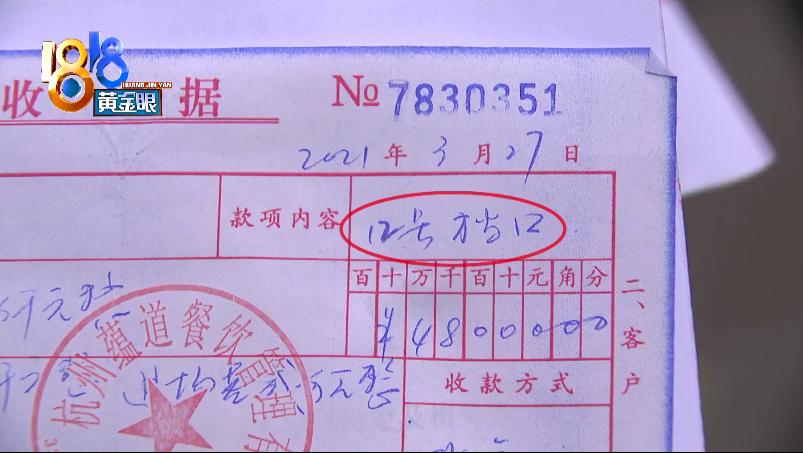 1818
HUANG JIN YAN
黄金眼
收 据 № 7830351
2021 年 3 月 27 日
款项内容 12号档口
百 十 万 千 百 十 元 角 分
¥ 4 8 0 0 0 0 0
仟元整
进场费贰万元整
收款方式
二、客户
杭州蕴道餐饮管理有